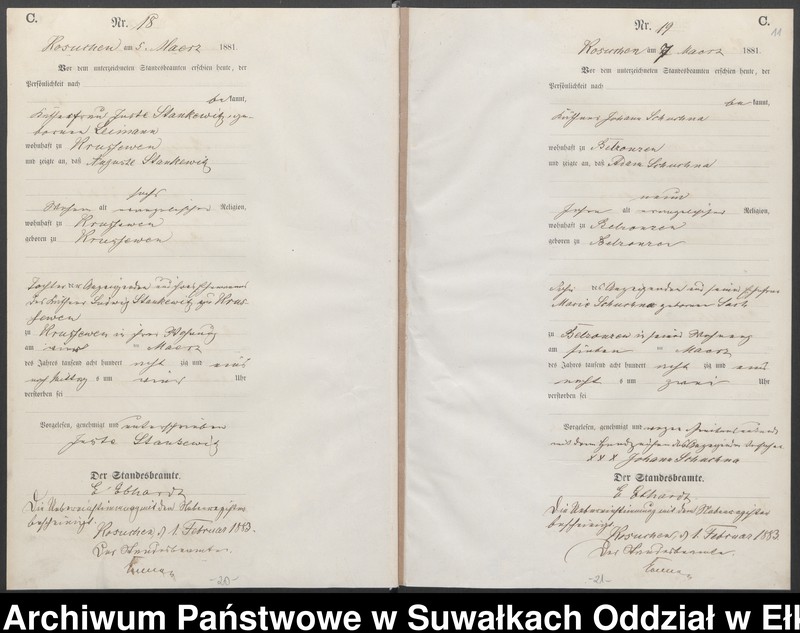 C.
Nr. 18
Rosuchen am 5. Maerz 1881.
Vor dem unterzeichneten Standesbeamten erschien heute, der
Persönlichkeit nach
be kannt,
Juste Stankewitz ge-
borene
wohnhaft zu Krussewen
und zeigte an, daß Auguste Stankewitz
sechs
Wochen alt evangelischer Religion,
wohnhaft zu Krussewen
geboren zu Krussewen
Tochter der Anzeigenden und ihres Ehemannes
des Ludwig Stankewitz zu Krus-
sewen
zu Krussewen in ihrer Wohnung
am Maerz
des Jahres tausend acht hundert acht zig und eins
nach Mittag um Uhr
verstorben sei
Vorgelesen, genehmigt und unterschrieben
Juste Stankewitz
Der Standesbeamte.
E Ebhardt
Die Uebereinstimmung mit dem Nebenregister
bescheinigt.
Rosuchen, d 1. Februar 1883.
Der Standesbeamte.
-20-
Nr. 19
C.
11
Rosuchen am 7 Maerz 1881
Vor dem unterzeichneten Standesbeamten erschien heute, der
Persönlichkeit nach
be kannt,
Johann Schuchna
wohnhaft zu
und zeigte an, daß Adam Schuchna
neun
Jahre alt evangelischer Religion,
wohnhaft zu
geboren zu
Sohn des Anzeigenden und seiner Ehefrau
Marie Schuchna geborenen
zu in seiner Wohnung
am sieben Maerz
des Jahres tausend acht hundert acht zig und eins
um zwei Uhr
verstorben sei
Vorgelesen, genehmigt und wegen
mit dem Handzeichen des Anzeigenden versehen
XXX Johann Schuchna
Der Standesbeamte.
E Ebhardt
Die Uebereinstimmung mit dem Nebenregister
bescheinigt.
Rosuchen, d 1. Februar 1883
Der Standesbeamte.
-21-
Archiwum Państwowe w Suwałkach Oddział w Ełk